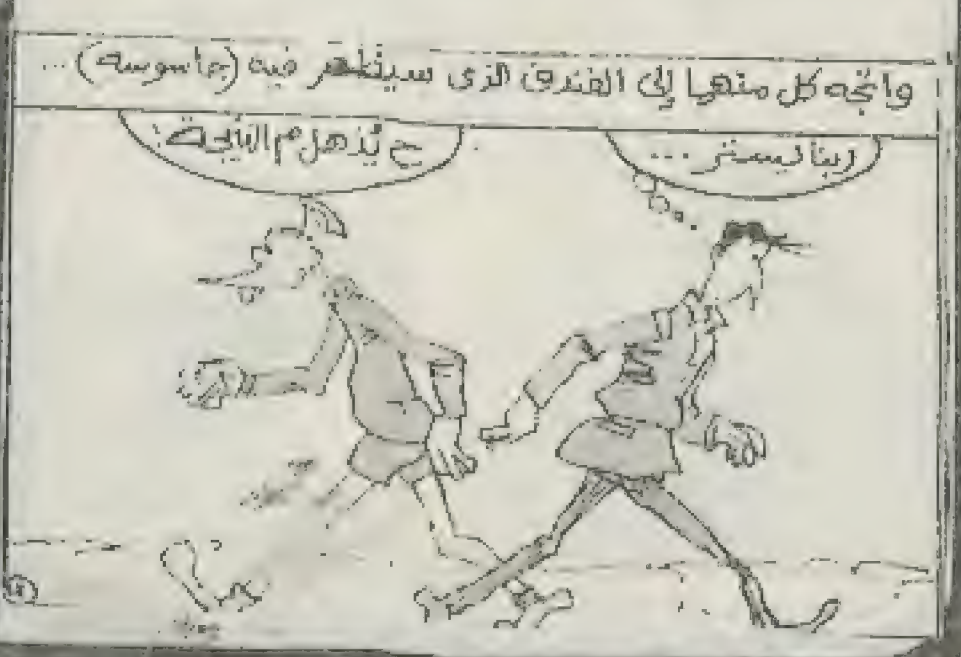 واتجه كل منهما إلى الفندق الذى سينظهر فيه (جاسوسه) ...
ربنا يستر ...
ح يُذهل م النتيجة!